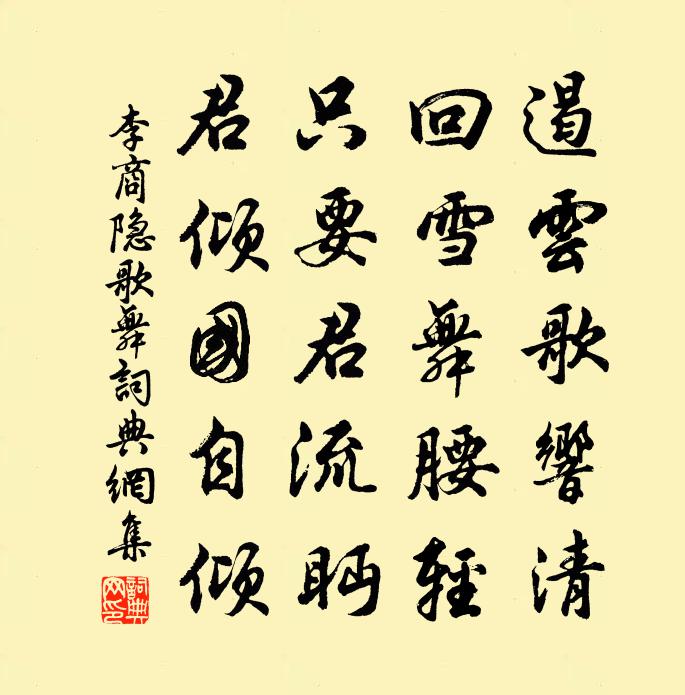 遏雲歌響清
回雪舞腰輕
只要君流眄
君傾國自傾
李商隐歌舞詞典網集
詞典網印